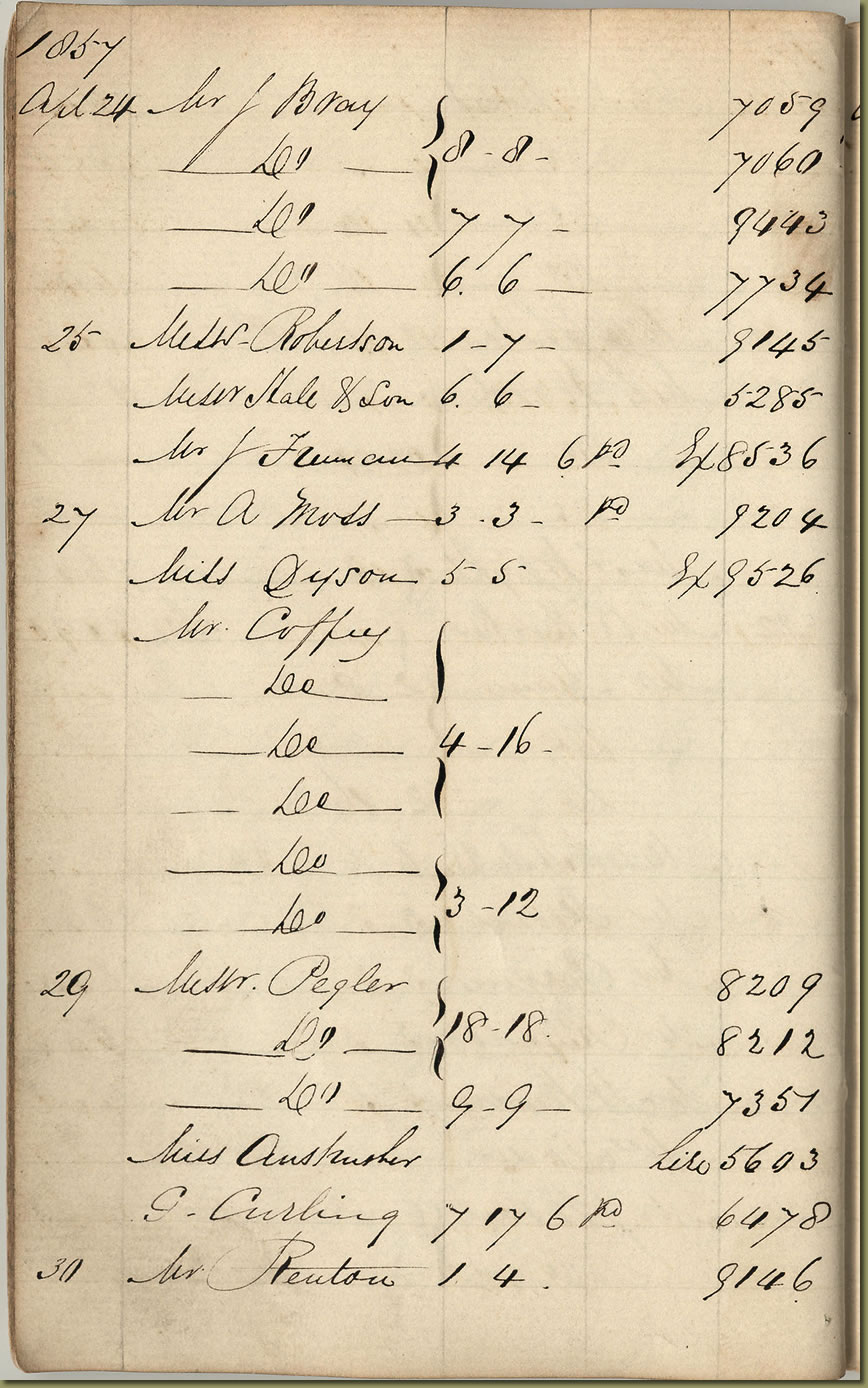 1857
Apl 24 Mr J Bray 7059
Do 8 - 8 - 7060
Do 7 7 - 9443
Do 6. 6 7734
25 Messrs Robertson 1 - 7 - 9145
Messrs Hale & Son 6. 6 - 5285
Mr J Freeman 4 14 6 pd Ex 8536
27 Mr A Moss 3 . 3 - pd 9204
Miss Dyson 5 5 Ex 9526
Mr. Coffey
Do
Do 4 - 16 -
Do
Do
Do 3 - 12
29 Messrs. Pegler 8209
Do 18 - 18. 8212
Do 9 - 9 - 7351
Miss Hire 5603
G - Curling 7 17 6 pd 6478
30 Mr Renton 1 4 . 9146